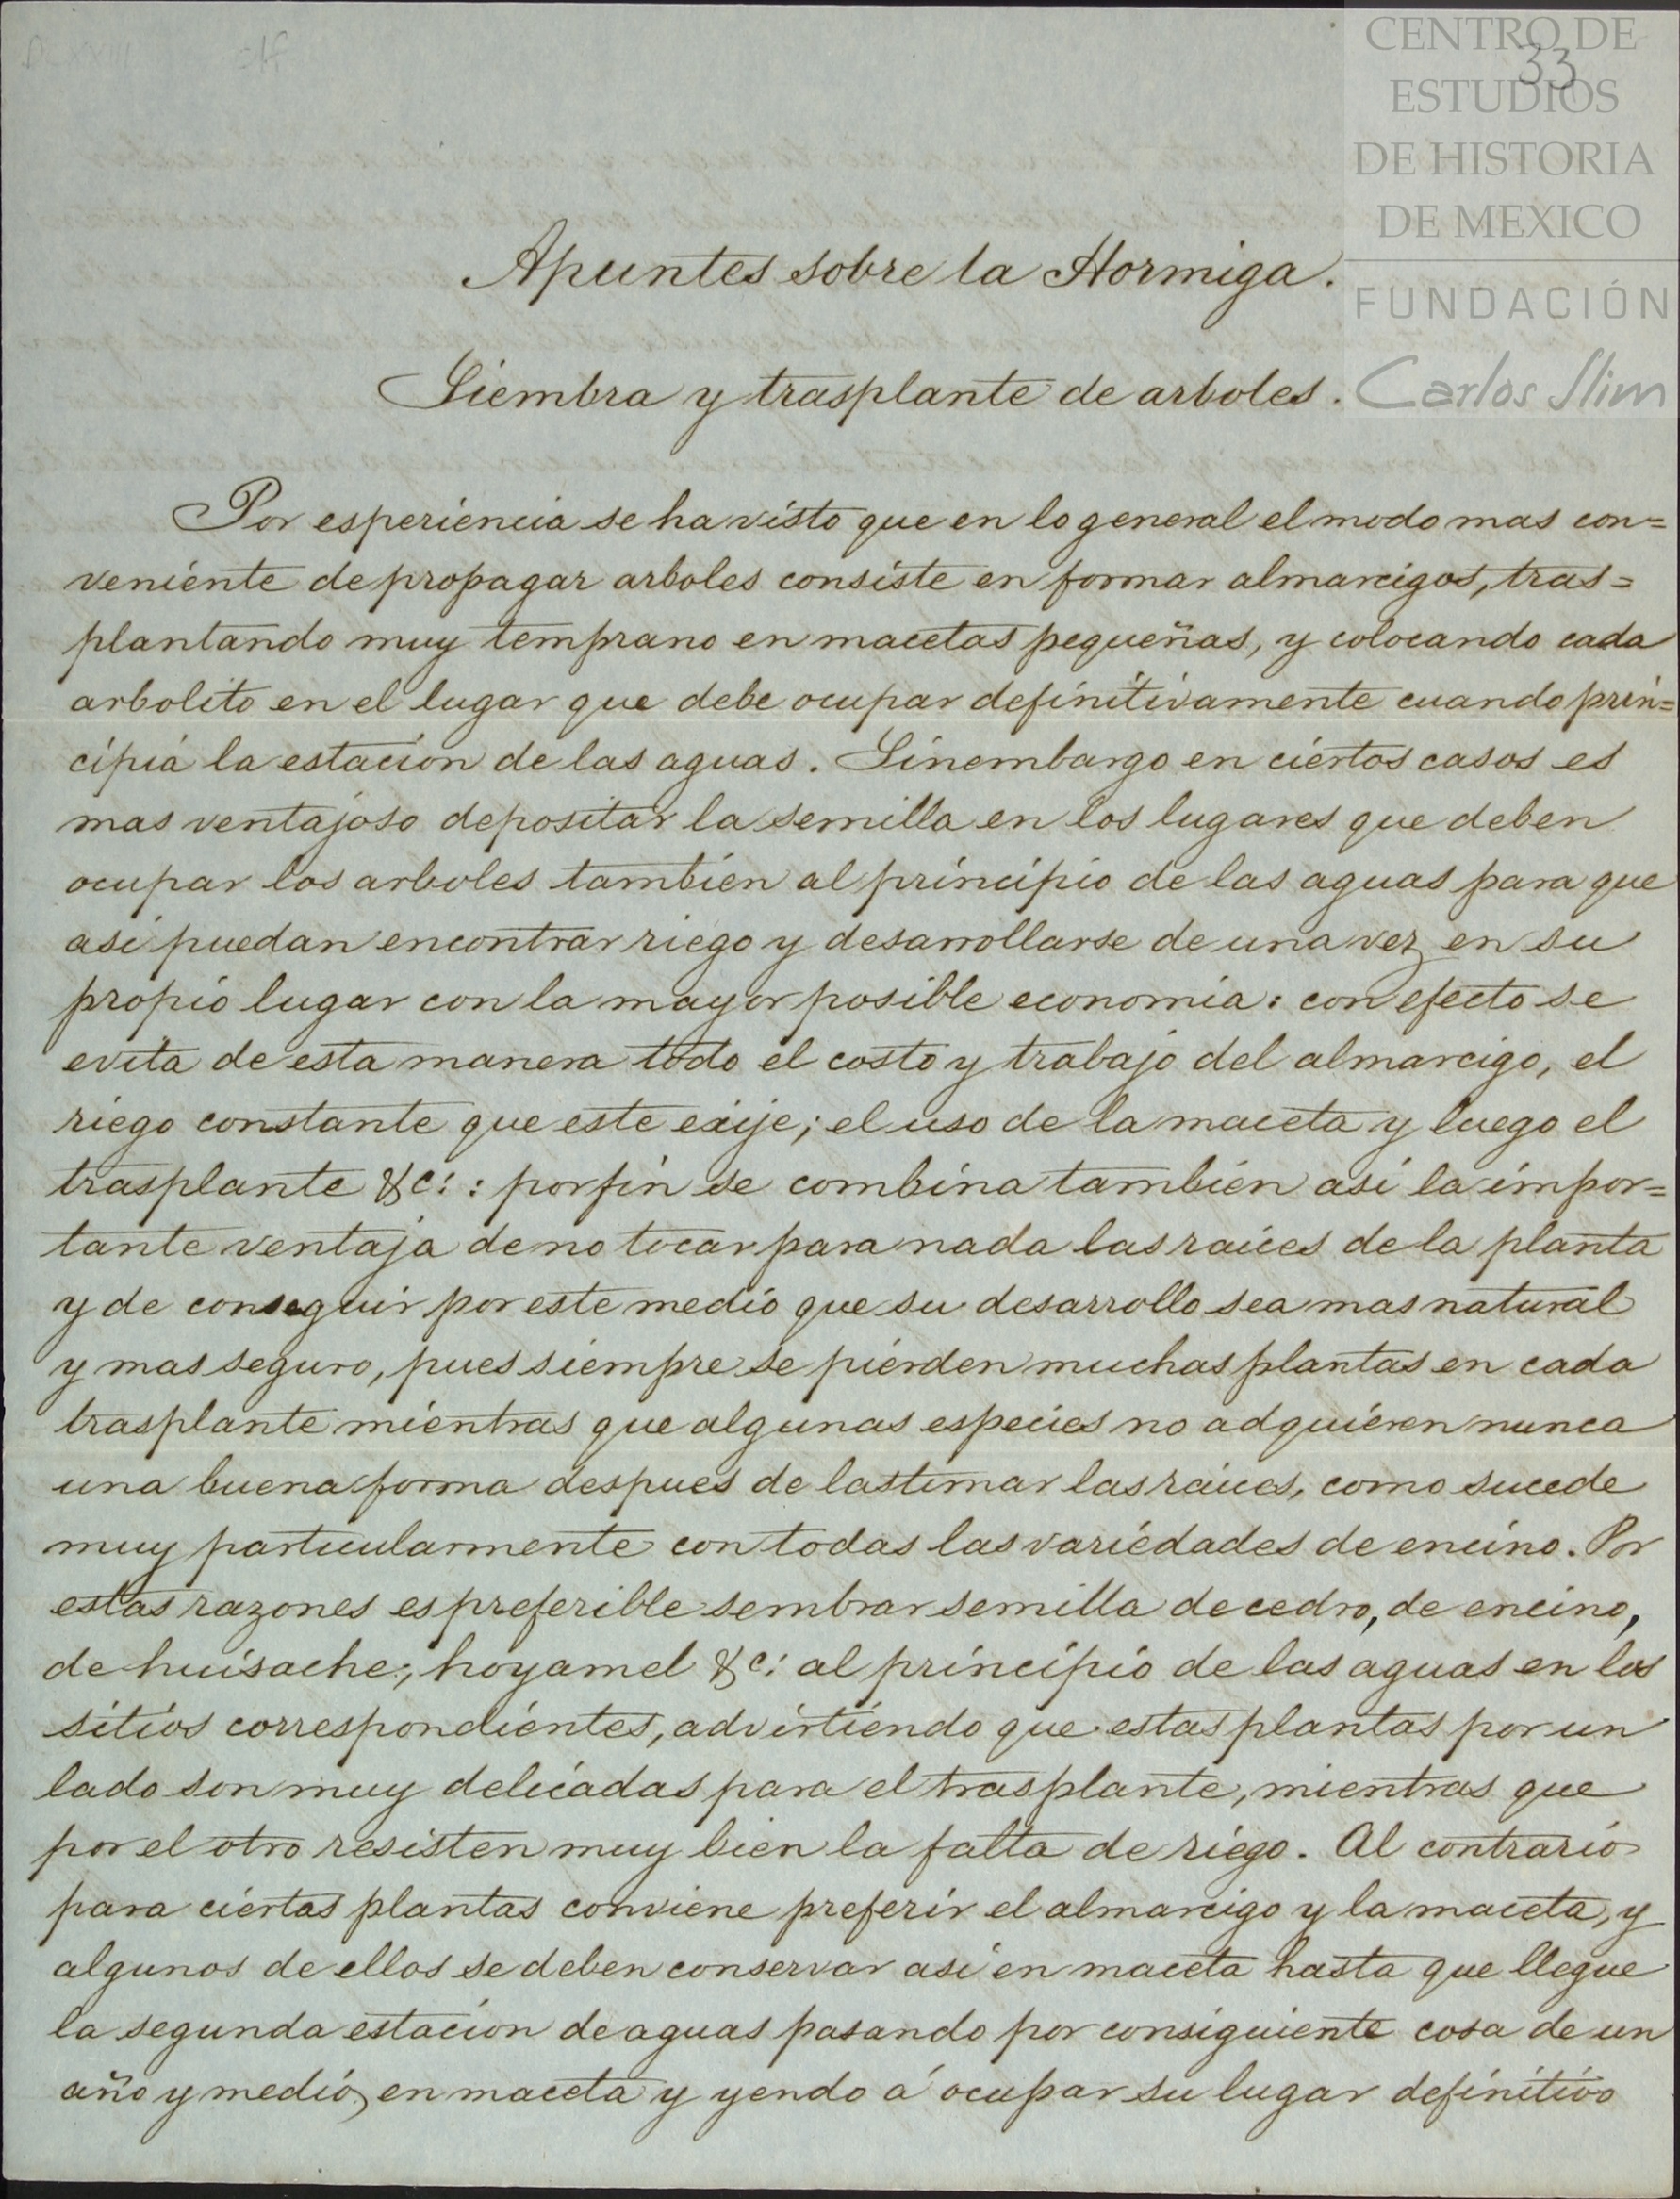 CENTRO DE
33
ESTUDIOS
DE HISTORIA
DE MEXICO
FUNDACIÓN
Carlos Slim
Apuntes sobre la Hormiga.
Siembra y trasplante de arboles.
Por esperiencia se ha visto que en lo general el modo mas con=
veniente de propagar arboles consiste en formar almarcigos, tras=
plantando muy temprano en macetas pequeñas, y colocando cada
arbolito en el lugar que debe ocupar definitivamente cuando prin=
cipia la estacion de las aguas. Sinembargo en ciertos casos es
mas ventajoso depositar la semilla en los lugares que deben
ocupar los arboles tambien al principio de las aguas para que
asi puedan encontrar riego y desarrollarse de una vez en su
propio lugar con la mayor posible economia: con efecto se
evita de esta manera todo el costo y trabajo del almarcigo, el
riego constante que este exije; el uso de la maceta y luego el
trasplante &c: : por fin se combina tambien asi la impor=
tante ventaja de no tocar para nada las raices de la planta
y de conseguir por este medio que su desarrollo sea mas natural
y mas seguro, pues siempre se pierden muchas plantas en cada
trasplante mientras que algunas especies no adquieren nunca
una buena forma despues de lastimar las raices, como sucede
muy particularmente con todas las variedades de encino. Por
estas razones es preferible sembrar semilla de cedro, de encino,
de huisache, hoyamel &c: al principio de las aguas en los
sitios correspondientes, advirtiendo que estas plantas por un
lado son muy delicadas para el trasplante, mientras que
por el otro resisten muy bien la falta de riego. Al contrario
para ciertas plantas conviene preferir el almarcigo y la maceta, y
algunos de ellos se deben conservar asi en maceta hasta que llegue
la segunda estacion de aguas pasando por consiguiente cosa de un
año y medio, en maceta y yendo á ocupar su lugar definitivo